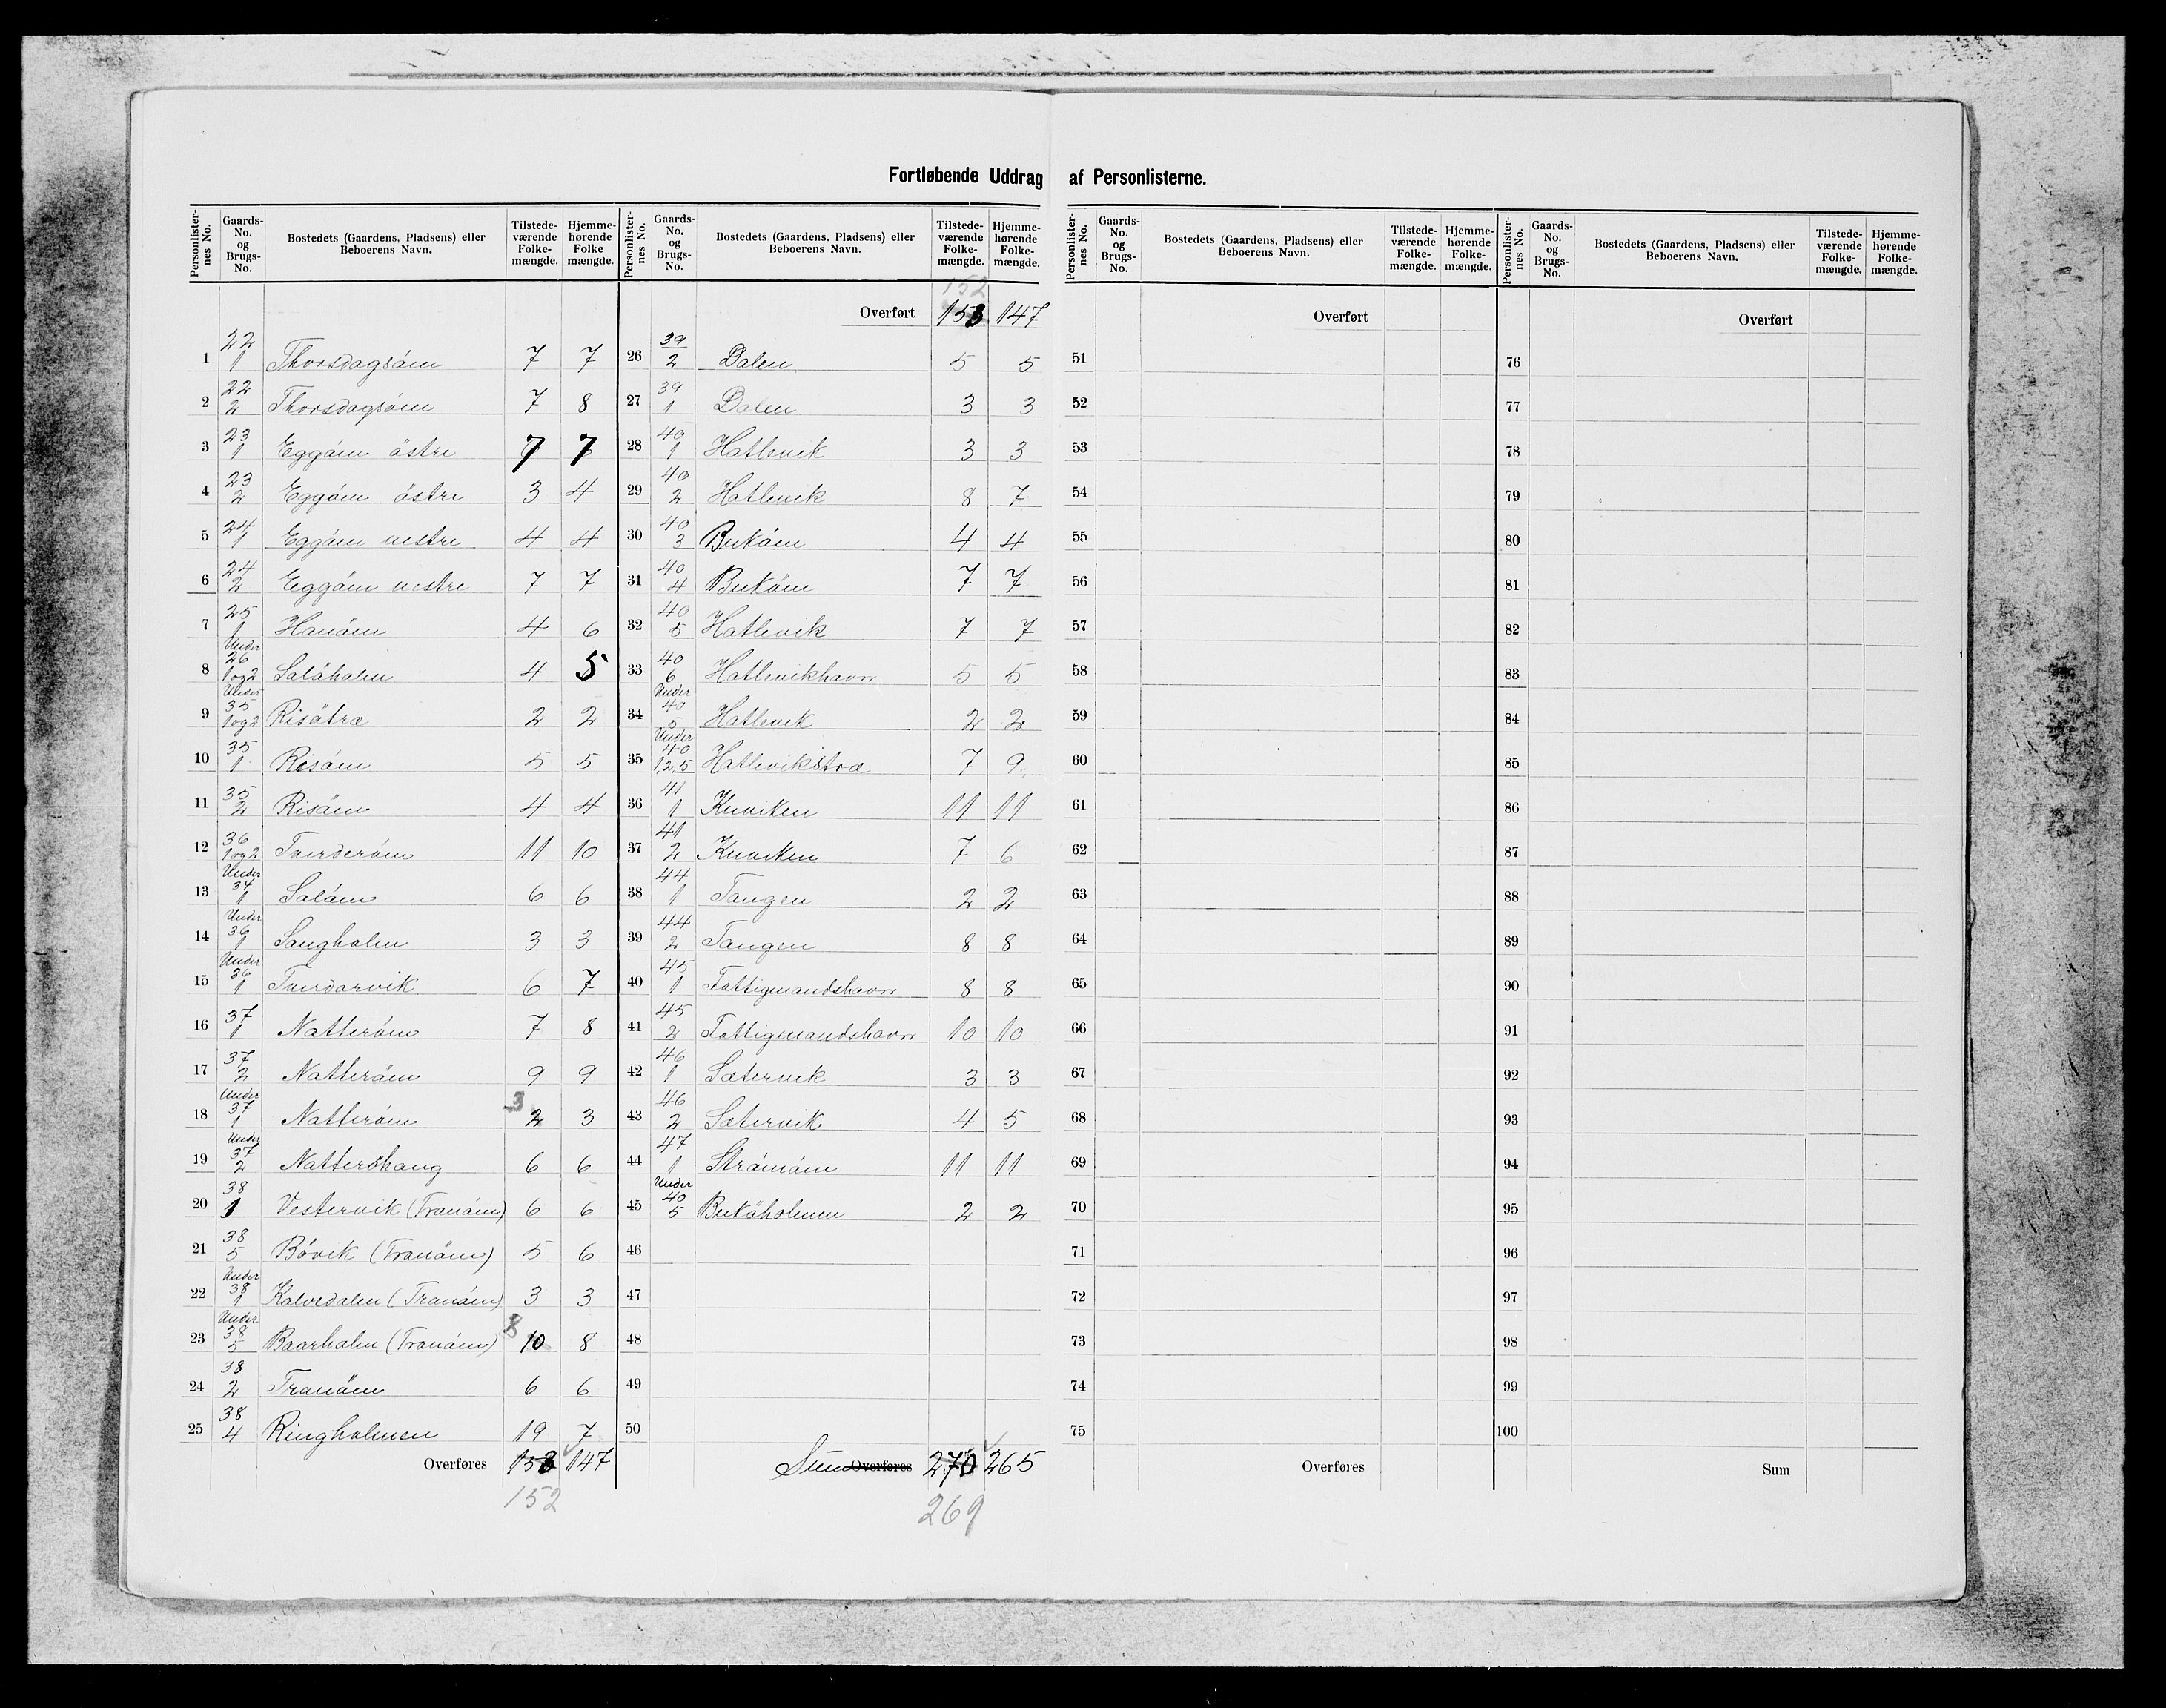 Fortløbende Uddrag af Personlisterne.
Personlister-nes No. Gaards-No. og Brugs-No. Bostedets (Gaardens, Pladsens) eller Beboerens Navn. Tilstede-værende Folke-mængde. Hjemme-hørende Folke mængde.
1 22 1 Thorsdagsöm 7 7
2 22 2 Thorsdagsöm 7 8
3 23 1 Eggöm östre 7 7
4 23 2 Eggöm östre 3 4
5 24 1 Eggöm vestre 4 4
6 24 2 Eggöm vestre 7 7
7 25 1 Hanöm 4 6
8 Under 26 1 og 2 Salöhalen 4 5
9 Under 35 1 og 2 Risötræ 2 2
10 35 1 Risöm 5 5
11 35 2 Risöm 4 4
12 36 1 og 2 Tverderöm 11 10
13 Under 34 1 Salöm 6 6
14 Under 36 1 Sangholm 3 3
15 Under 36 1 Tverdarvik 6 7
16 37 1 Natteröm 7 8
17 37 2 Natteröm 9 9
18 Under 37 1 Natteröm 3 2 3
19 Under 37 2 Natteröhaug 6 6
20 38 1 Vestervik (Tranöm) 6 6
21 38 5 Bövik (Tranöm) 5 6
22 Under 38 1 Kalvedalen (Tranöm) 3 3
23 Under 38 5 Baarholm (Tranöm) 8 10 8
24 38 2 Tranöm 6 6
25 38 4 Ringholmen 19 7
Overføres 153 147
152
Personlister-nes No. Gaards-No. og Brugs-No. Bostedets (Gaardens, Pladsens) eller Beboerens Navn. Tilstede-værende Folke-mængde. Hjemme-hørende Folke-mængde.
152
Overført 153 147
26 39 2 Dalen 5 5
27 39 1 Dalen 3 3
28 40 1 Hatlevik 3 3
29 40 2 Hatlevik 8 7
30 40 3 Buköm 4 4
31 40 4 Buköm 7 7
32 40 5 Hatlevik 7 7
33 40 6 Hatlevikhavn 5 5
34 Under 40 5 Hatlevik 2 2
35 Under 40 1,2,5 Hatlevikstræ 7 9
36 41 1 Kuviken 11 11
37 41 2 Kuviken 7 6
38 44 1 Tangen 2 2
39 44 2 Tangen 8 8
40 45 1 Fattigmandshavn 8 8
41 45 2 Fattigmandshavn 10 10
42 46 1 Sætervik 3 3
43 46 2 Sætervik 4 5
44 47 1 Strömöm 11 11
45 Under 40 5 Buköholmen 2 2
46
47
48
49
50
Sum Overføres 270 265
269
Personlister-nes No. Gaards-No. og Brugs-No. Bostedets (Gaardens, Pladsens) eller Beboerens Navn. Tilstede-værende Folke-mængde. Hjemme-hørende Folke-mængde.
Overført
51
52
53
54
55
56
57
58
59
60
61
62
63
64
65
66
67
68
69
70
71
72
73
74
75
Overføres
Personlister-nes No. Gaards-No. og Brugs-No. Bostedets (Gaardens, Pladsens) eller Beboerens Navn. Tilstede-værende Folke-mængde. Hjemme-hørende Folke-mængde.
Overført
76
77
78
79
80
81
82
83
84
85
86
87
88
89
90
91
92
93
94
95
96
97
98
99
100
Sum